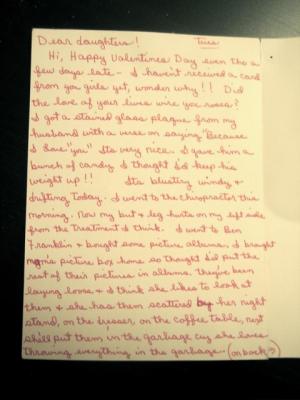 Dear daughters! Tues
Hi, Happy Valentines Day even tho a
few days late - I haven't received a card
from you girls yet, wonder why!! Did
the love of your lives wire you roses?
I got a stained glass plaque from my
husband with a verse on saying "Because
I Love "you" Its very nice. I gave him a
bunch of candy I thought I'd keep his
weight up!! Its blustery windy +
drifting today. I went to the chiropractor this
morning. Now my butt + leg hurts on my left side
from the treatment I think. I went to Ben
Franklin + bought some picture albums, I brought
mom's picture box home so thought I'd put the
rest of their pictures in albums. they've been
laying loose + I think she likes to look at
them + she has them scattered by her night
stand, on the dresser, on the coffee table, next
she'll put them in the garbage cuz she loves
throwing everything in the garbage. (on back→)